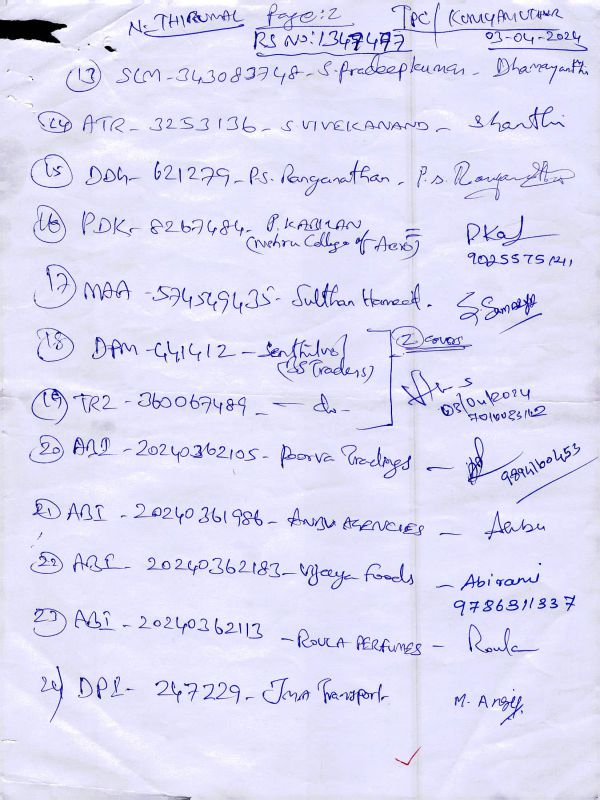 N. THIRUMAL Page: 2 TPC/KUNIYAMUTHUR
RS NO: 1347477 03-04-2024
13 SLM - 343083748 - S. Pradeepkumar - Dhamayanthi
14 ATR - 3253136 - S VIVEKANAND - Shanthi
15 DDG - 621279 - P.S. Ranganathan - P.S. Ranganathan
16 PDK - 8267484 - P. KABILAN =
(Nehru College of Aero) 90255751241
17 MAA - 574549435 - Sulthan Hameed.
18 DPM - 441412 - Senthilvel 2 covers
(BS Traders)
19 TRZ - 360067489 - do - 03/04/2024
20 ABI - 20240362105 - Poorva Tradings - 9894160453
21 ABI - 20240361986 - ANBU AGENCIES - Anbu
22 ABI - 20240362183 - Vijaya Foods - Abirami
9786311337
23 ABI - 20240362113 - ROULA PERFUMES - Roula
24) DPI - 247229 - JMA Transport